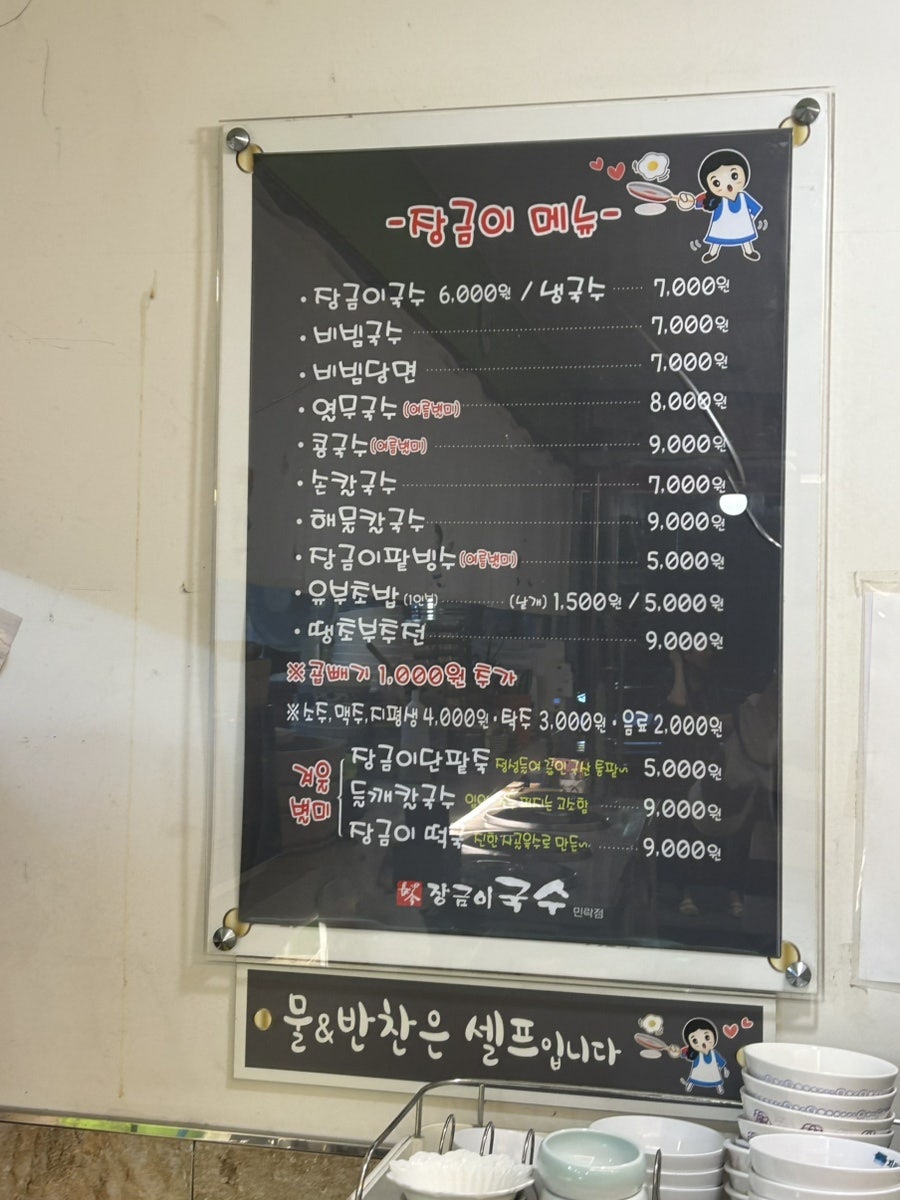 -장금이 메뉴-
· 장금이국수 6,000원 / 냉국수 ······ 7,000원
· 비빔국수 ······ 7,000원
· 비빔당면 ······ 7,000원
· 열무국수 (여름별미) ······ 8,000원
· 콩국수 (여름별미) ······ 9,000원
· 손칼국수 ······ 7,000원
· 해물칼국수 ······ 9,000원
· 장금이팥빙수 (여름별미) ······ 5,000원
· 유부초밥 (1인분) ······ (낱개) 1,500원 / 5,000원
· 땡초부추전 ······ 9,000원
※곱빼기 1,000원 추가
※소주,맥주,지평생 4,000원 · 탁주 3,000원 · 음료 2,000원
겨울
별미
장금이단팥죽 정성들여 끓인 국산 통팥~ 5,000원
들깨칼국수 퍼지는 고소함 ······ 9,000원
장금이 떡국 진한 사골육수로 만든~ ······ 9,000원
장금이국수 민락점
물&반찬은 셀프입니다